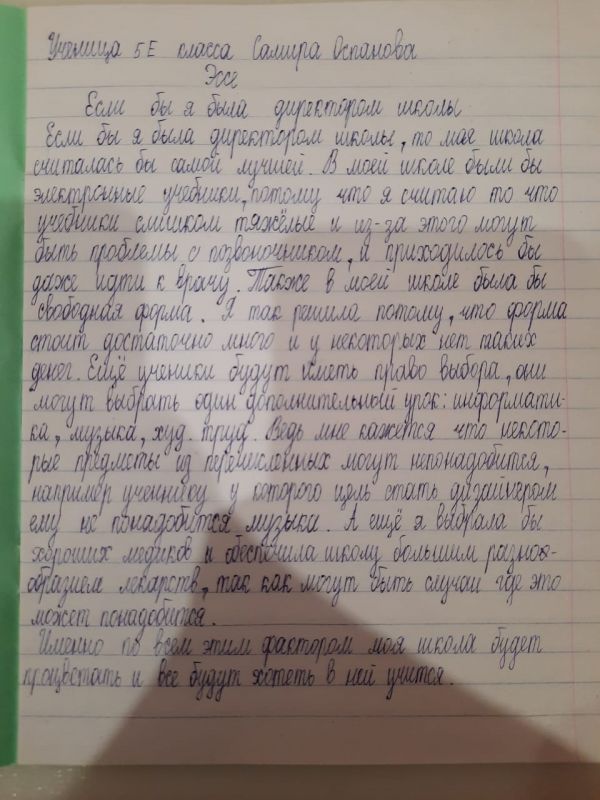 Ученица 5Е класса Самира Оспанова
Эссе
Если бы я была директором школы
Если бы я была директором школы, то моя школа
считалась бы самой лучшей. В моей школе были бы
электронные учебники, потому что я считаю то что
учебники слишком тяжёлые и из-за этого могут
быть проблемы с позвоночником, и приходилось бы
даже идти к врачу. Также в моей школе была бы
свободная форма. Я так решила потому, что форма
стоит достаточно много и у некоторых нет таких
денег. Ещё ученики будут иметь право выбора, они
могут выбрать один дополнительный урок: информати-
ка, музыка, худ. труд. Ведь мне кажется что некото-
рые предметы из перечисленных могут непонадобится,
например ученнику у которого цель стать дизайнером
ему не понадобится музыка. А ещё я выбрала бы
хороших медиков и обеспечила школу большим разно-
образием лекарств, так как могут быть случаи где это
может понадобится.
Именно по всем этим фактором моя школа будет
процветать и все будут хотеть в ней учится.